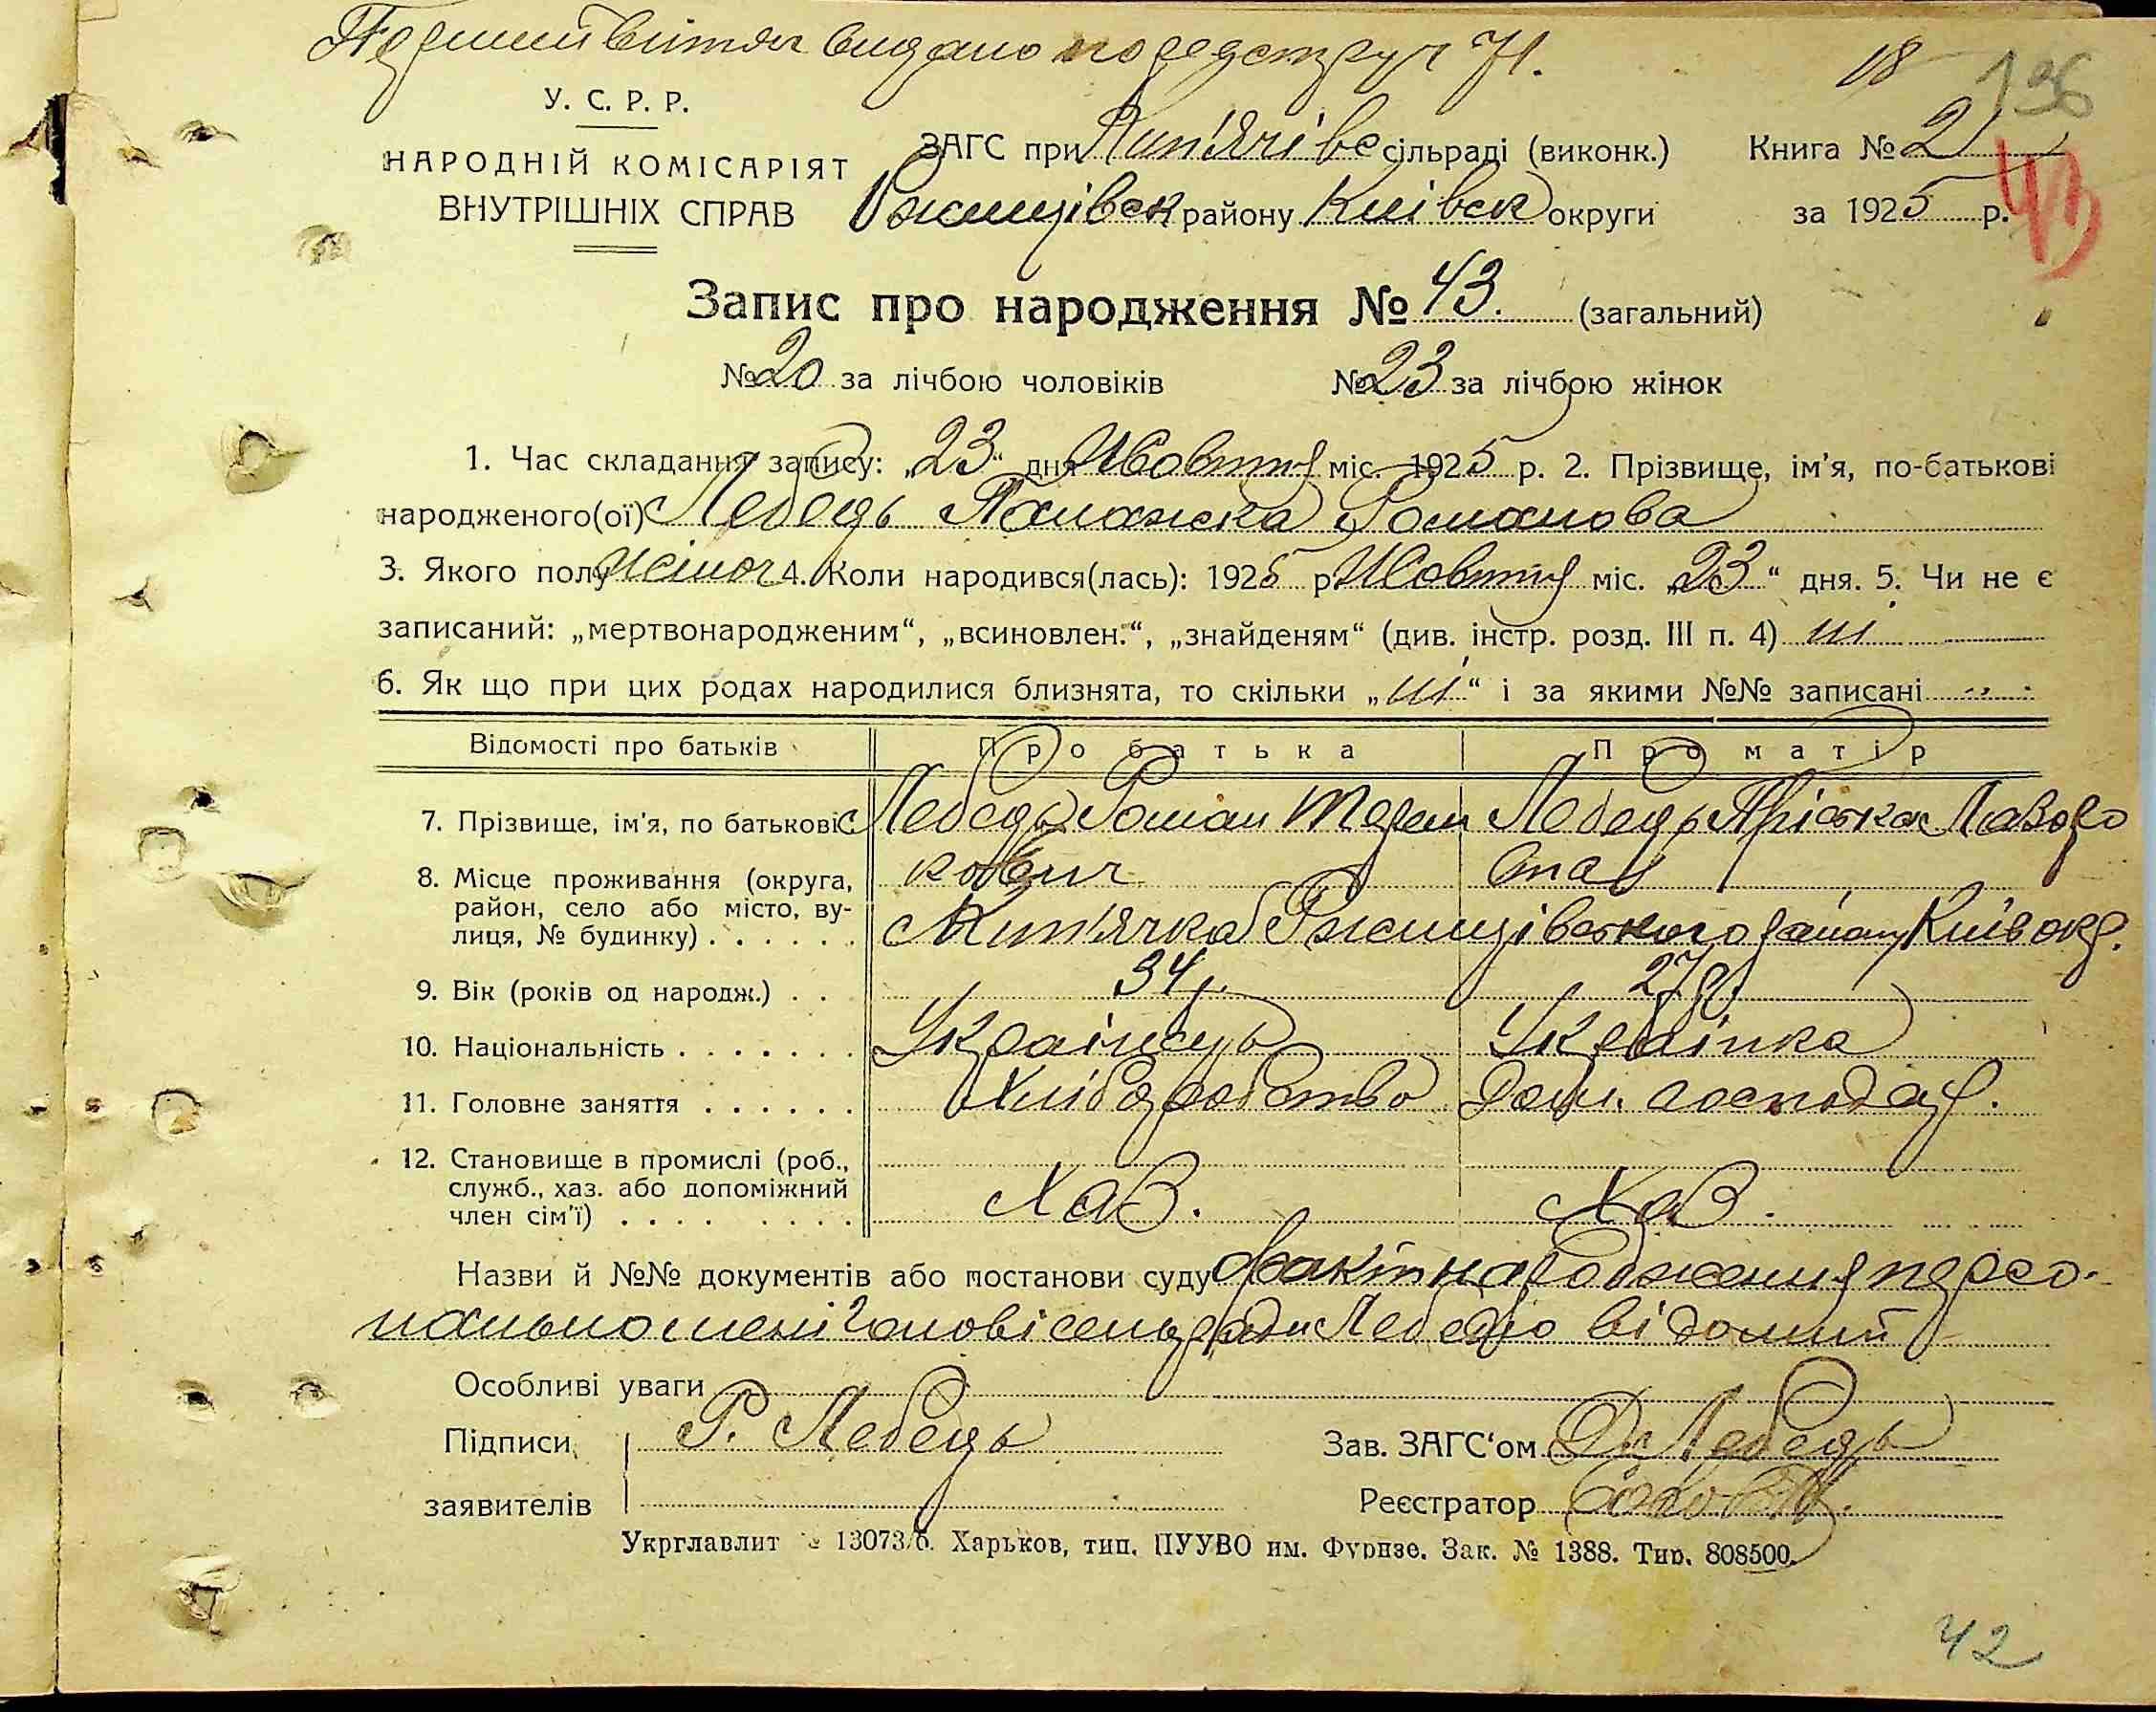 Перший витяг видано по реєстру ч 71.
18 196
У. С. Р. Р.
НАРОДНІЙ КОМІСАРІЯТ
ВНУТРІШНІХ СПРАВ
ЗАГС при Кип'ячівс сільраді (виконк.) Книга № 2
Ржищівськ району Київськ округи за 1925 р.
43
Запис про народження № 43. (загальний)
№ 20 за лічбою чоловіків № 23 за лічбою жінок
1. Час складання запису: „23“ дня Жовтня міс. 1925 р. 2. Прізвище, ім'я, по-батькові
народженого(ої) Лебедь Паланска Романова
3. Якого полу жіноч 4. Коли народився(лась): 1925 р. Жовтня міс. „23“ дня. 5. Чи не є
записаний: „мертвонародженим“, „всиновлен.“, „знайденям“ (див. інстр. розд. III п. 4) ні
6. Як що при цих родах народилися близнята, то скільки „ні“ і за якими №№ записані
Відомості про батьків Про батька Про матір
7. Прізвище, ім'я, по батькові Лебедь Роман Терен Лебедь Пріська
кович
8. Місце проживання (округа,
район, село або місто, ву-
лиця, № будинку) Кип'ячка Ржищівського району Київ окр.
9. Вік (років од народж.) 34 р. 27 р.
10. Національність Українець Українка
11. Головне заняття Хліборобство Дом. господар.
12. Становище в промислі (роб.,
служб., хаз. або допоміжний
член сім'ї) Хаз. Хаз.
Назви й №№ документів або постанови суду факт народження персо-
нально мені Голові сельради Лебедю відомий
Особливі уваги
Підписи Р. Лебедь Зав. ЗАГС'ом Д. Лебедь
заявителів Реєстратор
Укрглавлит № 13073/б. Харьков, тип. ПУУВО им. Фрунзе. Зак. № 1388. Тир. 808500.
42